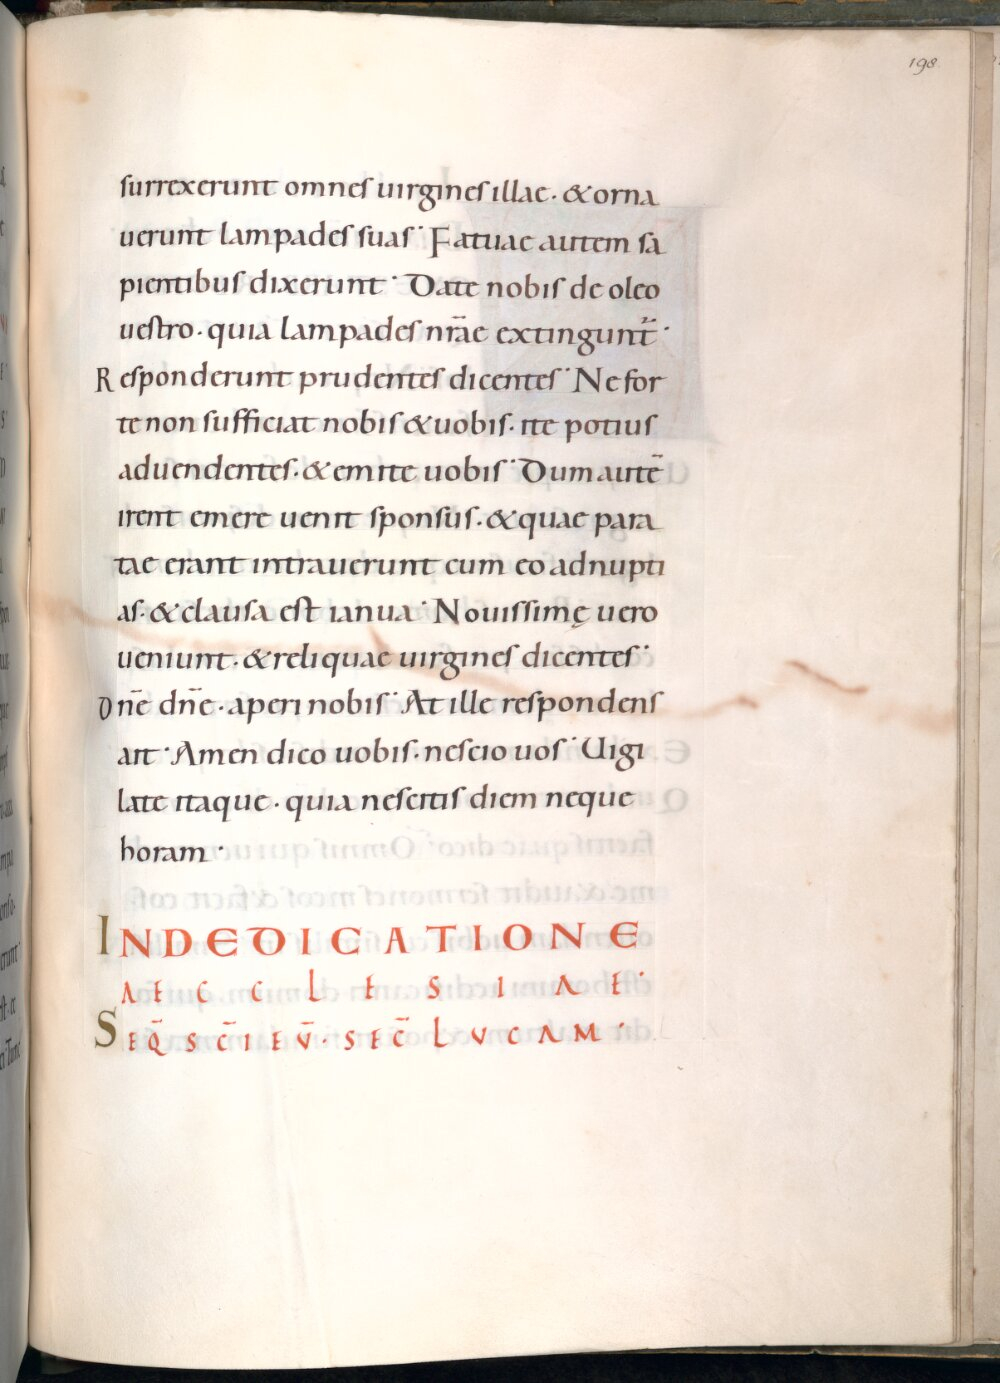 198
surrexerunt omnes uirgines illae · & orna
uerunt lampades suas · Fatuae autem sa
pientibus dixerunt · Date nobis de oleo
uestro · quia lampades nr̄ae extingunt̄ ·
Responderunt prudentes dicentes · Ne for
te non sufficiat nobis & uobis · ite potius
ad uendentes · & emite uobis · Dum autē
irent emere uenit sponsus · & quae para
tae erant intrauerunt cum eo ad nupti
as · & clausa est ianua · Nouissimę uero
ueniunt · & reliquae uirgines dicentes ·
Dn̄e dn̄e · aperi nobis · At ille respondens
ait · Amen dico uobis · nescio uos · Uigi
late itaque · quia nescitis diem neque
horam ·
IN DEDICATIONE
AECCLESIAE ·
SEQ̄ SC̄I EV̄ · SEC̄ LVCAM ·